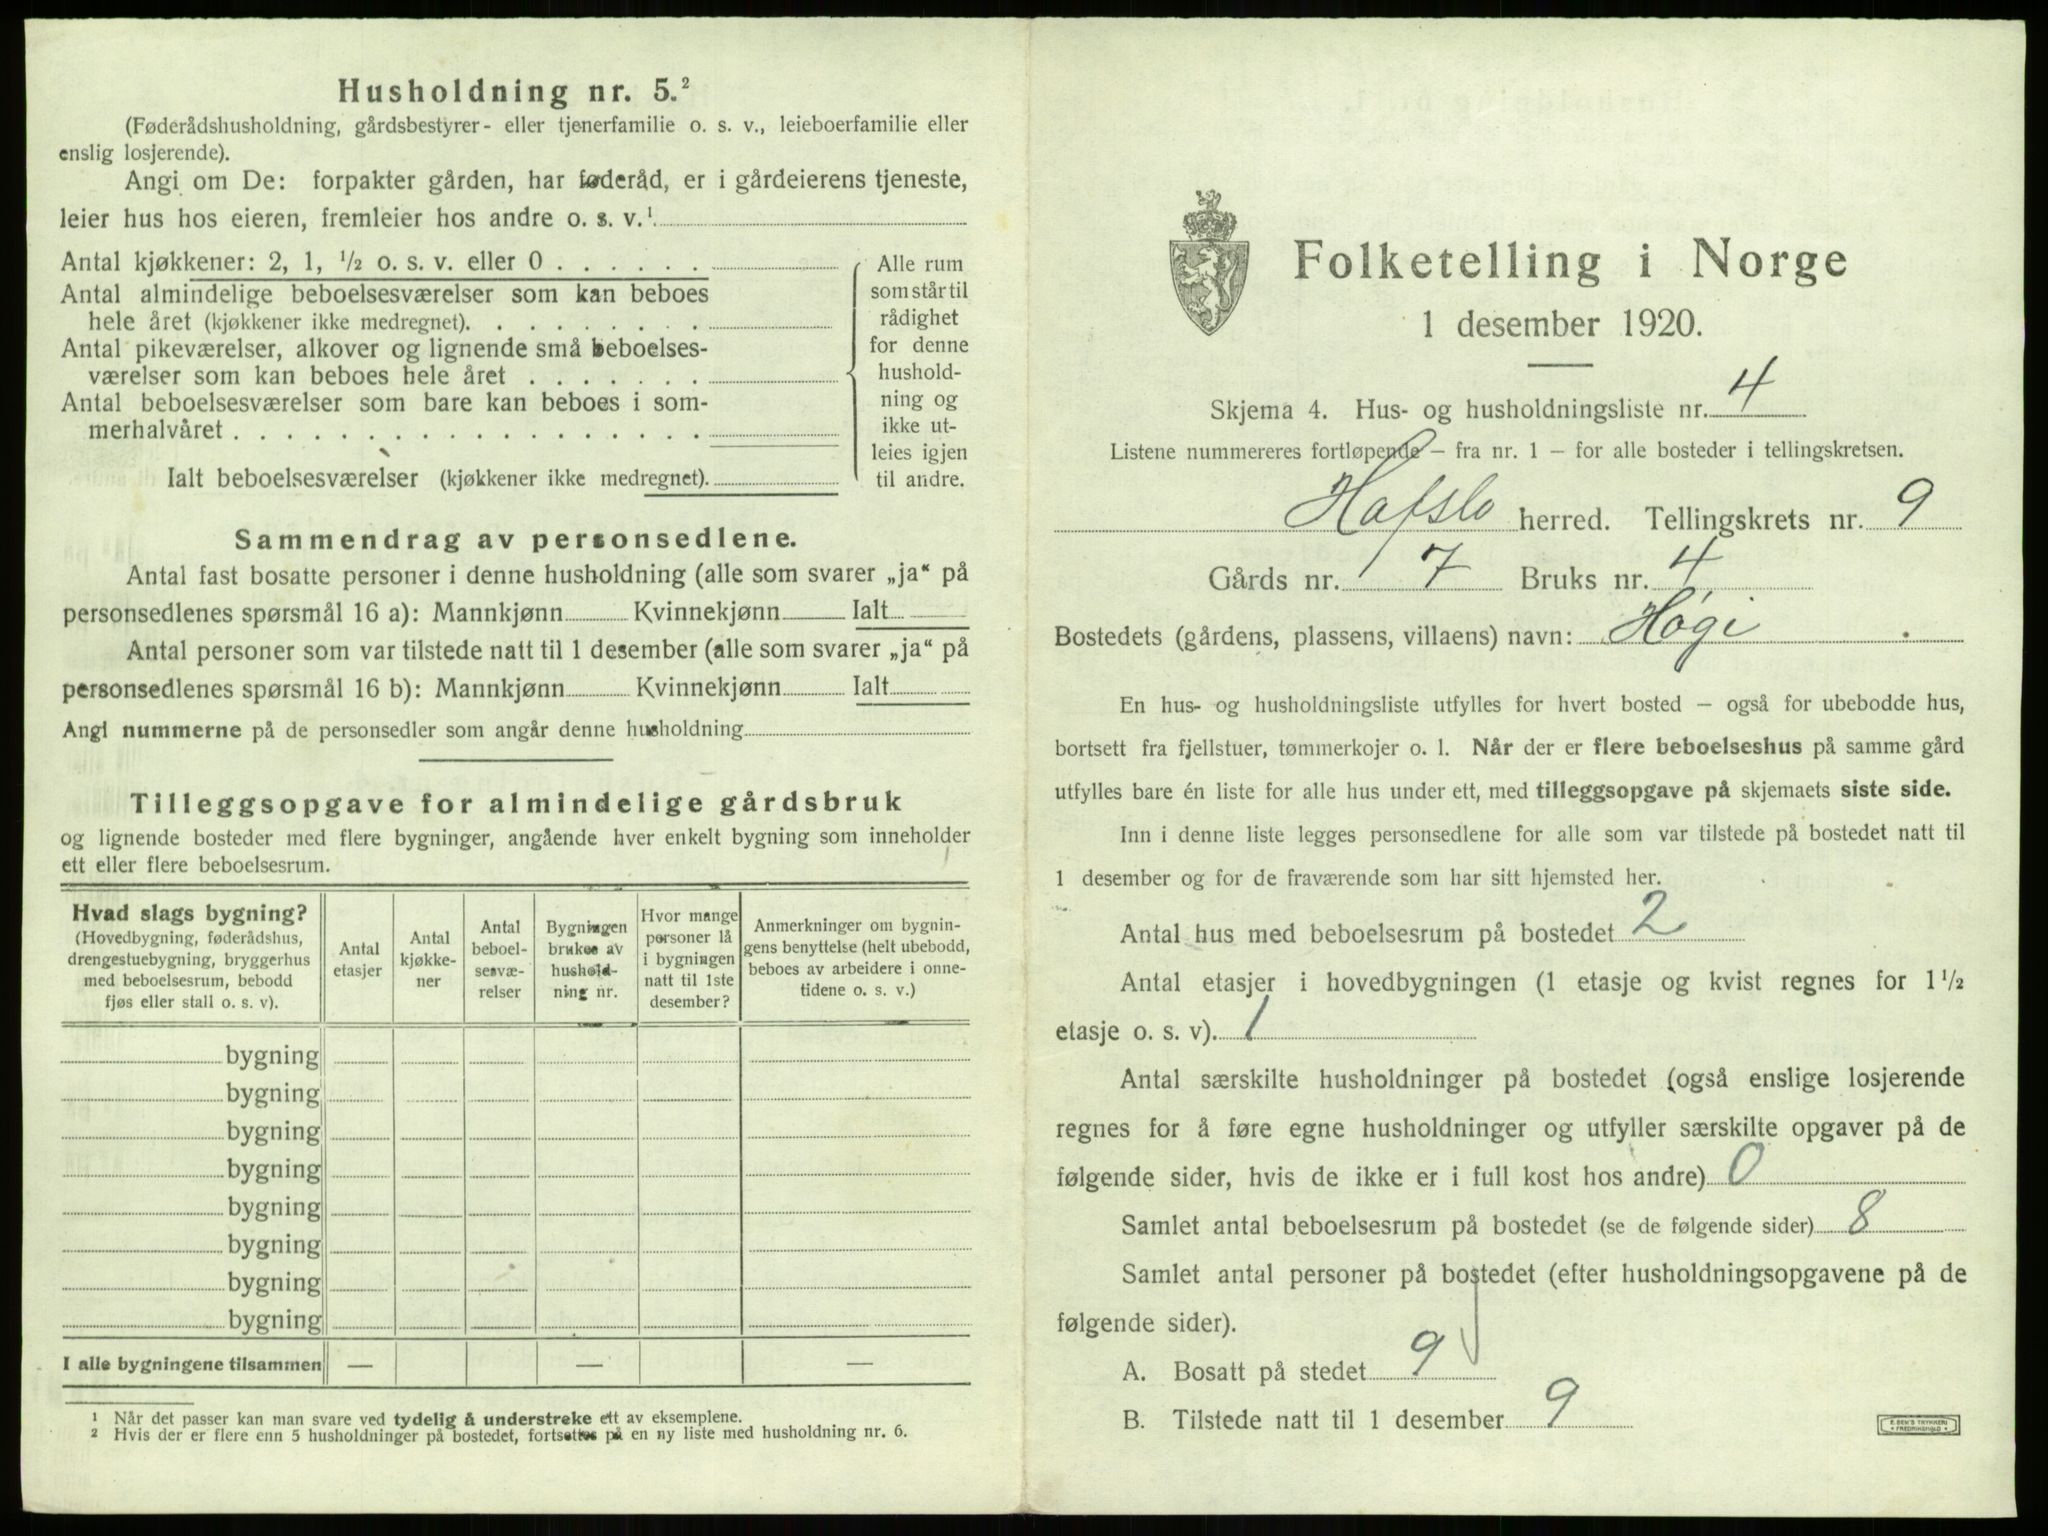 Husholdning nr. 5.²
(Føderådshusholdning, gårdsbestyrer- eller tjenerfamilie o. s. v., leieboerfamilie eller
enslig losjerende).
Angi om De: forpakter gården, har føderåd, er i gårdeierens tjeneste,
leier hus hos eieren, fremleier hos andre o. s. v.¹
Antal kjøkkener: 2, 1, ½ o. s. v. eller 0
Antal almindelige beboelsesværelser som kan beboes
hele året (kjøkkener ikke medregnet).
Antal pikeværelser, alkover og lignende små beboelses-
værelser som kan beboes hele året
Antal beboelsesværelser som bare kan beboes i som-
merhalvåret
Ialt beboelsesværelser (kjøkkener ikke medregnet).
Alle rum
som står til
rådighet
for denne
hushold-
ning og
ikke ut-
leies igjen
til andre.
Sammendrag av personsedlene.
Antal fast bosatte personer i denne husholdning (alle som svarer „ja“ på
personsedlenes spørsmål 16 a): Mannkjønn Kvinnekjønn Ialt
Antal personer som var tilstede natt til 1 desember (alle som svarer „ja“ på
personsedlenes spørsmål 16 b): Mannkjønn Kvinnekjønn Ialt
Angi nummerne på de personsedler som angår denne husholdning
Tilleggsopgave for almindelige gårdsbruk
og lignende bosteder med flere bygninger, angående hver enkelt bygning som inneholder
ett eller flere beboelsesrum.
Hvad slags bygning?
(Hovedbygning, føderådshus,
drengestuebygning, bryggerhus
med beboelsesrum, bebodd
fjøs eller stall o. s. v).
Antal
etasjer
Antal
kjøkke-
ner
Antal
beboel-
sesvæ-
relser
Bygningen
brukes av
hushold-
ning nr.
Hvor mange
personer lå
i bygningen
natt til 1ste
desember?
Anmerkninger om bygnin-
gens benyttelse (helt ubebodd,
beboes av arbeidere i onne-
tidene o. s. v.)
bygning
bygning
bygning
bygning
bygning
bygning
bygning
bygning
I alle bygningene tilsammen — — —
¹ Når det passer kan man svare ved tydelig å understreke ett av eksemplene.
² Hvis der er flere enn 5 husholdninger på bostedet, fortsettes på en ny liste med husholdning nr. 6.
Folketelling i Norge
1 desember 1920.
Skjema 4. Hus- og husholdningsliste nr. 4
Listene nummereres fortløpende – fra nr. 1 – for alle bosteder i tellingskretsen.
Hafslo herred. Tellingskrets nr. 9
Gårds nr. 7 Bruks nr. 4
Bostedets (gårdens, plassens, villaens) navn: Høgi.
En hus- og husholdningsliste utfylles for hvert bosted – også for ubebodde hus,
bortsett fra fjellstuer, tømmerkojer o. l. Når der er flere beboelseshus på samme gård
utfylles bare én liste for alle hus under ett, med tilleggsopgave på skjemaets siste side.
Inn i denne liste legges personsedlene for alle som var tilstede på bostedet natt til
1 desember og for de fraværende som har sitt hjemsted her.
Antal hus med beboelsesrum på bostedet 2
Antal etasjer i hovedbygningen (1 etasje og kvist regnes for 1 ½
etasje o. s. v). 1
Antal særskilte husholdninger på bostedet (også enslige losjerende
regnes for å føre egne husholdninger og utfyller særskilte opgaver på de
følgende sider, hvis de ikke er i full kost hos andre) 0
Samlet antal beboelsesrum på bostedet (se de følgende sider) 8
Samlet antal personer på bostedet (efter husholdningsopgavene på de
følgende sider).
A. Bosatt på stedet 9
B. Tilstede natt til 1 desember 9
E. SEM'S TRYKKERI
• FREDRIKSHALD •